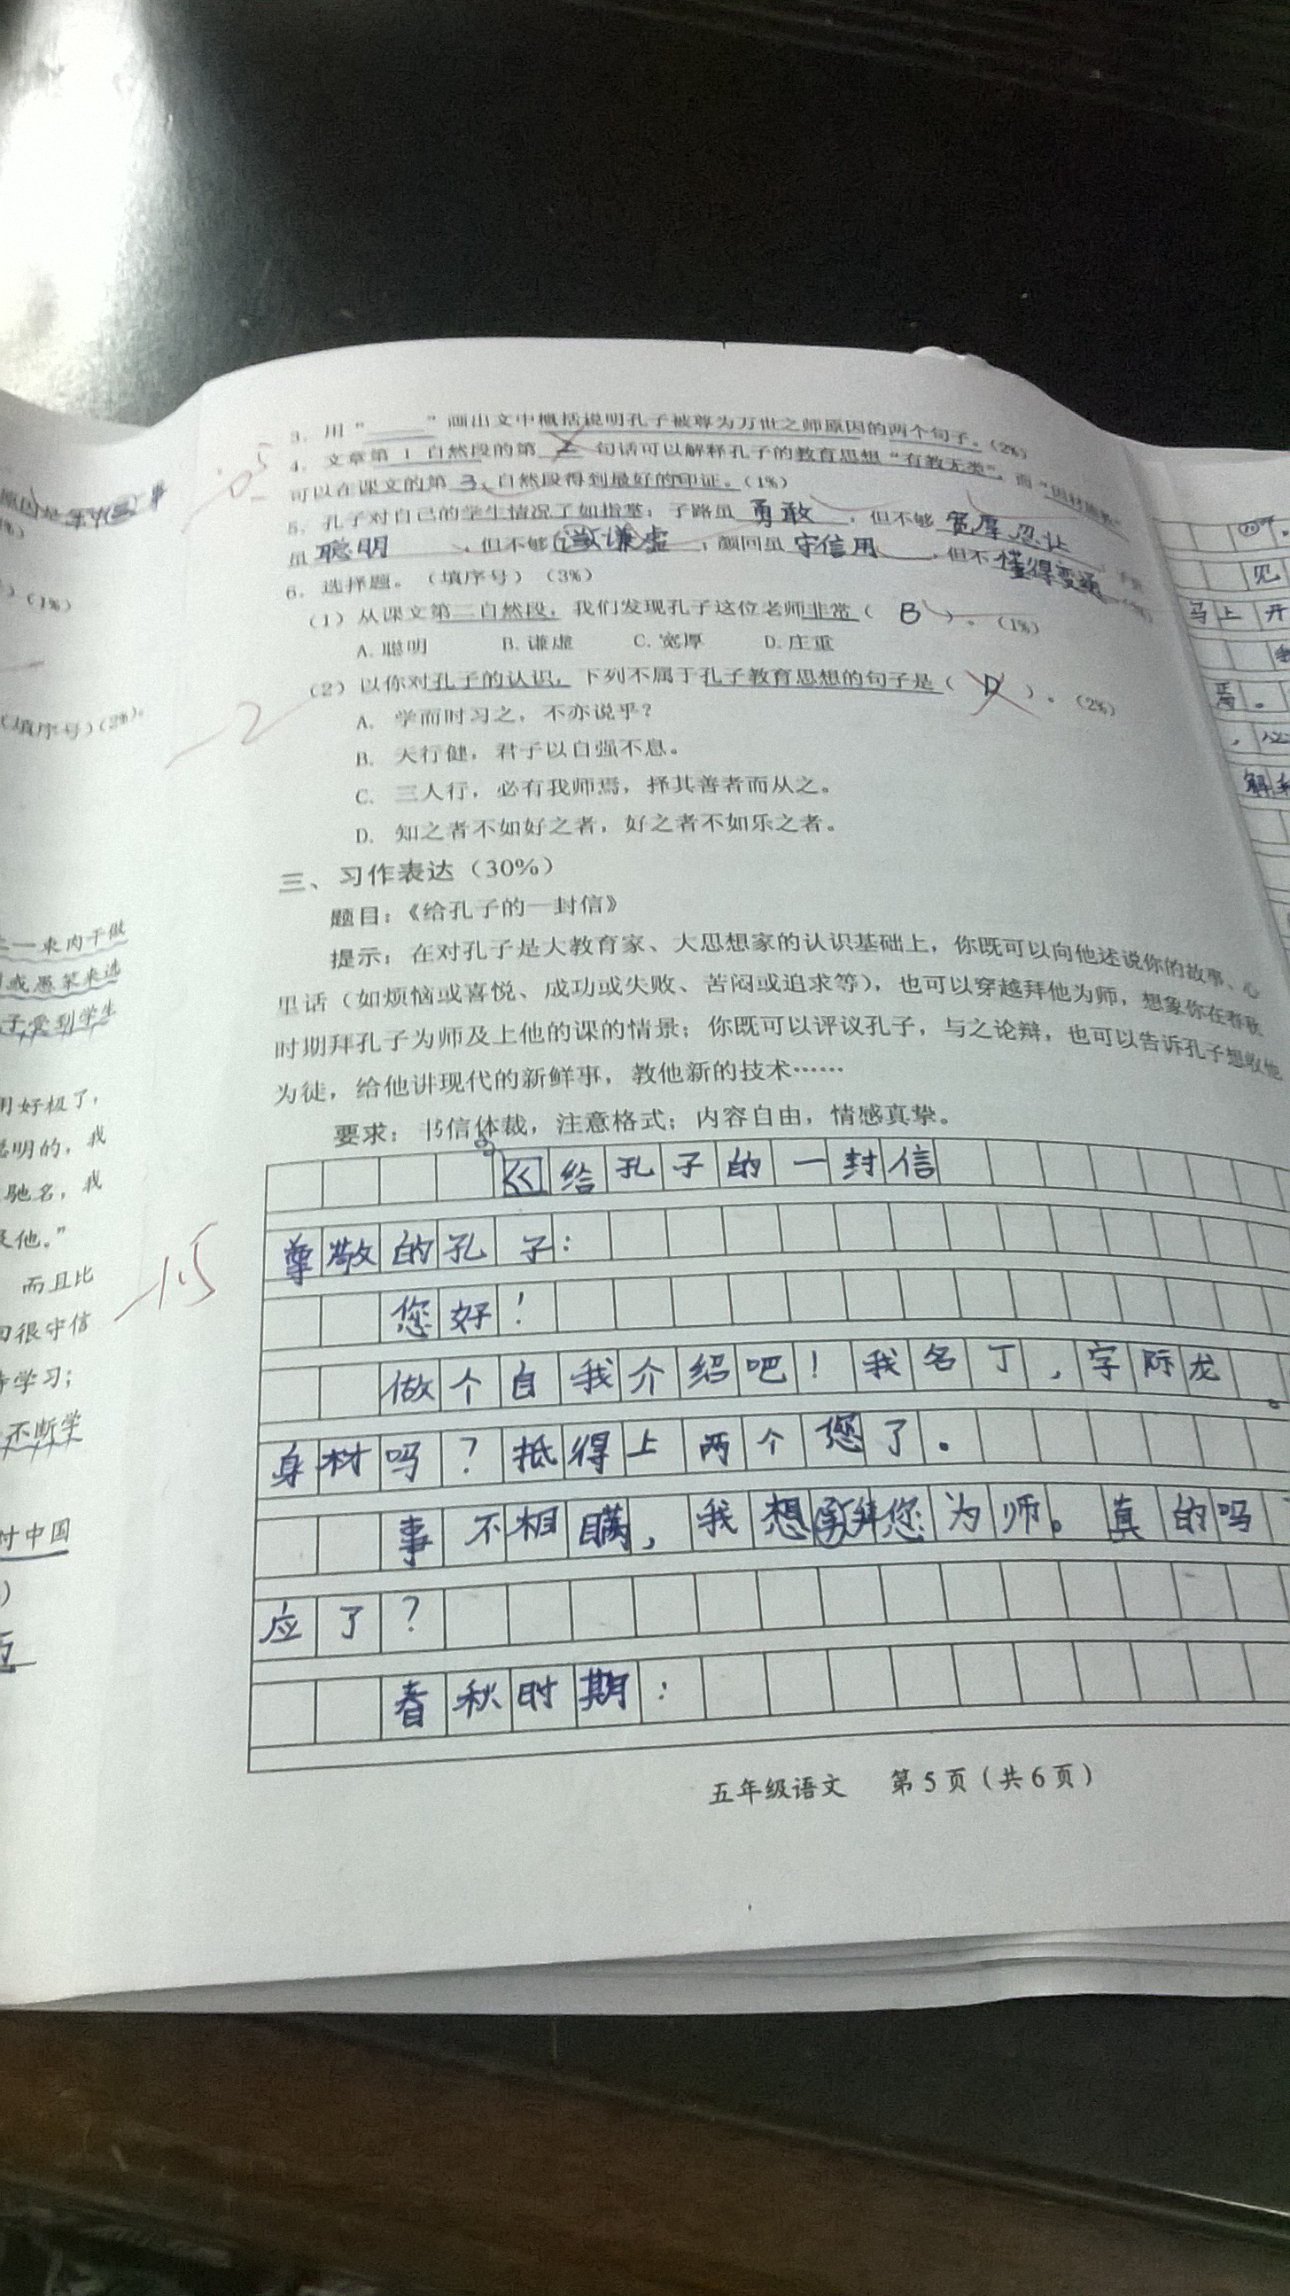 3. 用“______”画出文中概括说明孔子被尊为万世之师原因的两个句子。(2%)
4. 文章第 1 自然段的第 句话可以解释孔子的教育思想“有教无类”，而“因材施教”
可以在课文的第 3 自然段得到最好的印证。(1%)
5. 孔子对自己的学生情况了如指掌：子路虽 勇敢 ，但不够 宽厚忍让
虽 聪明 ，但不够 谦虚 ；颜回虽 守信用 ，但不 懂得变通
6. 选择题。（填序号）（3%）
（1）从课文第二自然段，我们发现孔子这位老师非常（ B ）。（1%）
A. 聪明 B. 谦虚 C. 宽厚 D. 庄重
（2）以你对孔子的认识，下列不属于孔子教育思想的句子是（ D ）。（2%）
A. 学而时习之，不亦说乎？
B. 天行健，君子以自强不息。
C. 三人行，必有我师焉，择其善者而从之。
D. 知之者不如好之者，好之者不如乐之者。
三、习作表达（30%）
题目：《给孔子的一封信》
提示：在对孔子是大教育家、大思想家的认识基础上，你既可以向他述说你的故事、心
里话（如烦恼或喜悦、成功或失败、苦闷或追求等），也可以穿越拜他为师，想象你在春秋
时期拜孔子为师及上他的课的情景；你既可以评议孔子，与之论辩，也可以告诉孔子想收他
为徒，给他讲现代的新鲜事，教他新的技术……
要求：书信体裁，注意格式；内容自由，情感真挚。
给孔子的一封信
尊敬的孔子：
您好！
做个自我介绍吧！我名丁，字际龙。
身材吗？抵得上两个您了。
事不相瞒，我想拜您为师。真的吗
应了？
春秋时期：
五年级语文 第5页（共6页）
-0.5
-2
-1.5
（1%）
（填序号）(2%)。
一束肉干做
或愚笨来选
子受到学生
用好极了，
聪明的，我
驰名，我
他。”
而且比
回很守信
学习；
不断学
对中国
见
马上开
焉。